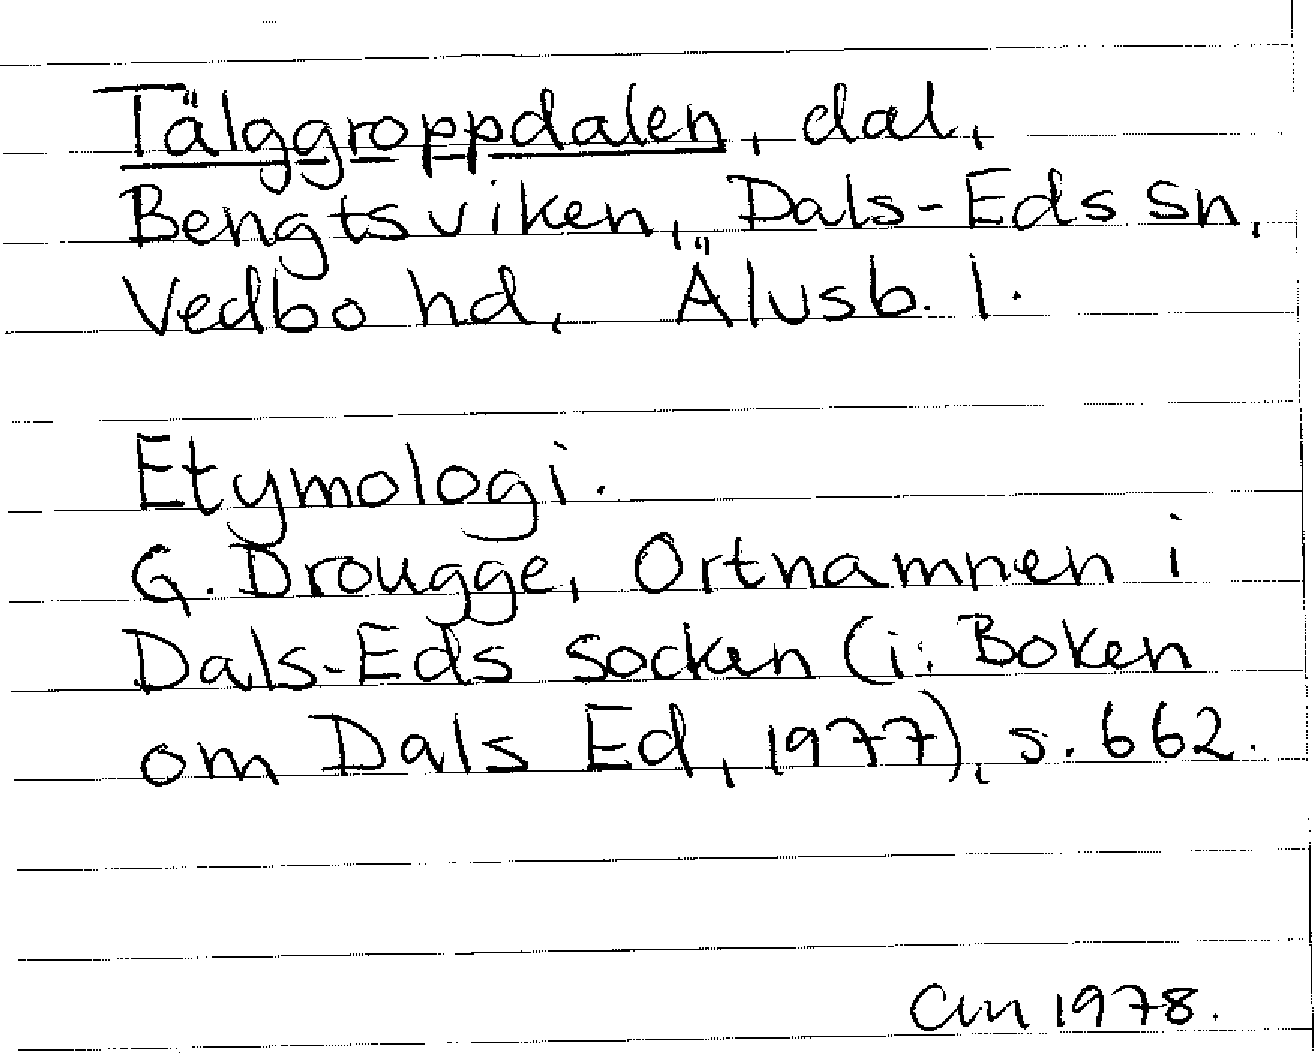 Tälggroppdalen, dal,
Bengtsviken, Dals-Eds sn,
Vedbo hd, Älvsb. l.
Etymologi.
G. Drougge, Ortnamnen i
Dals-Eds socken (i: Boken
om Dals Ed, 1977), s. 662.
1978.